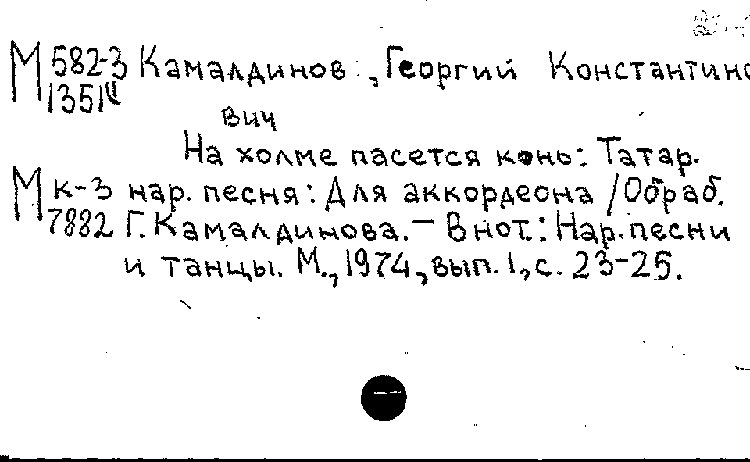 М 582-3 Камалдинов, Георгий Константино
1351ч
вич
На холме пасется конь: Татар.
М к-3 нар. песня: Для аккордеона / Обраб.
7882 Г. Камалдинова. — В нот.: Нар. песни
и танцы. М., 1974, вып. 1, с. 23-25.